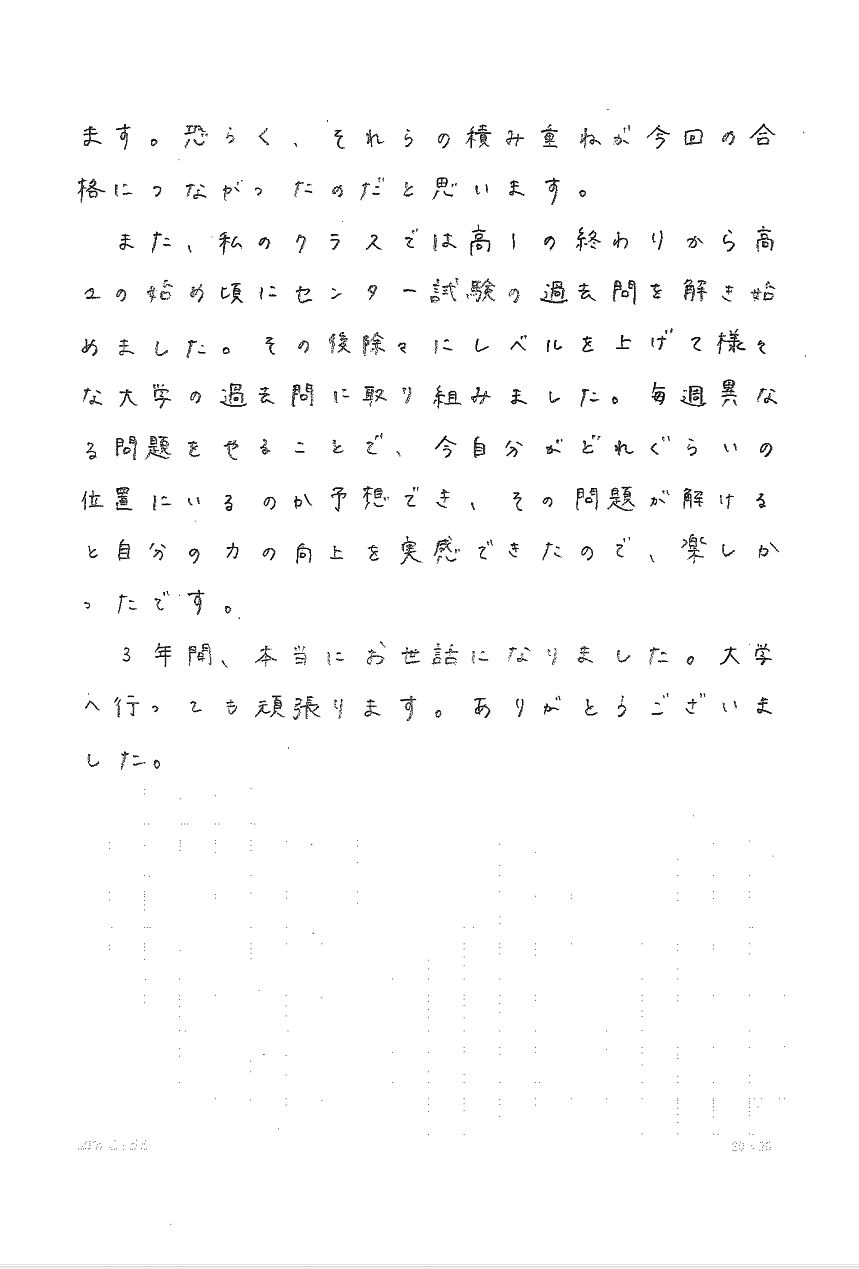 ます。恐らく、それらの積み重ねが今回の合
格につながったのだと思います。
また、私のクラスでは高1の終わりから高
2の始め頃にセンター試験の過去問を解き始
めました。その後除々にレベルを上げて様々
な大学の過去問に取り組みました。毎週異な
る問題をやることで、今自分がどれぐらいの
位置にいるのか予想でき、その問題が解ける
と自分の力の向上を実感できたので、楽しか
ったです。
3年間、本当にお世話になりました。大学
へ行っても頑張ります。ありがとうございま
した。